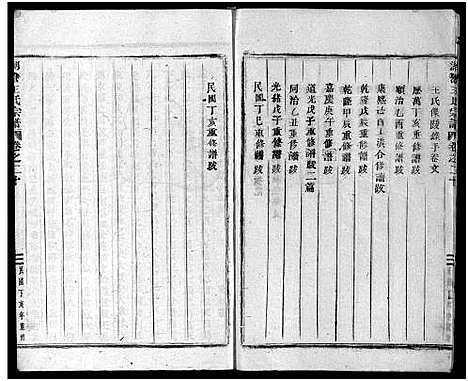 王氏宗譜四卷之二十
王氏保
手卷文
萬丁亥重修譜跋
順治乙酉重修譜跋
康熙己
合修譜跋
乾隆戊辰重修譜跋
乾隆甲辰重修譜跋
嘉慶庚午重修譜跋
道光戊子重修譜跋二篇
同治乙丑重修譜跋
光緒戊子重修譜跋
民國丁巳重修譜跋
民國丁亥重修譜跋
王氏宗譜四卷之二十
民國丁亥年重修